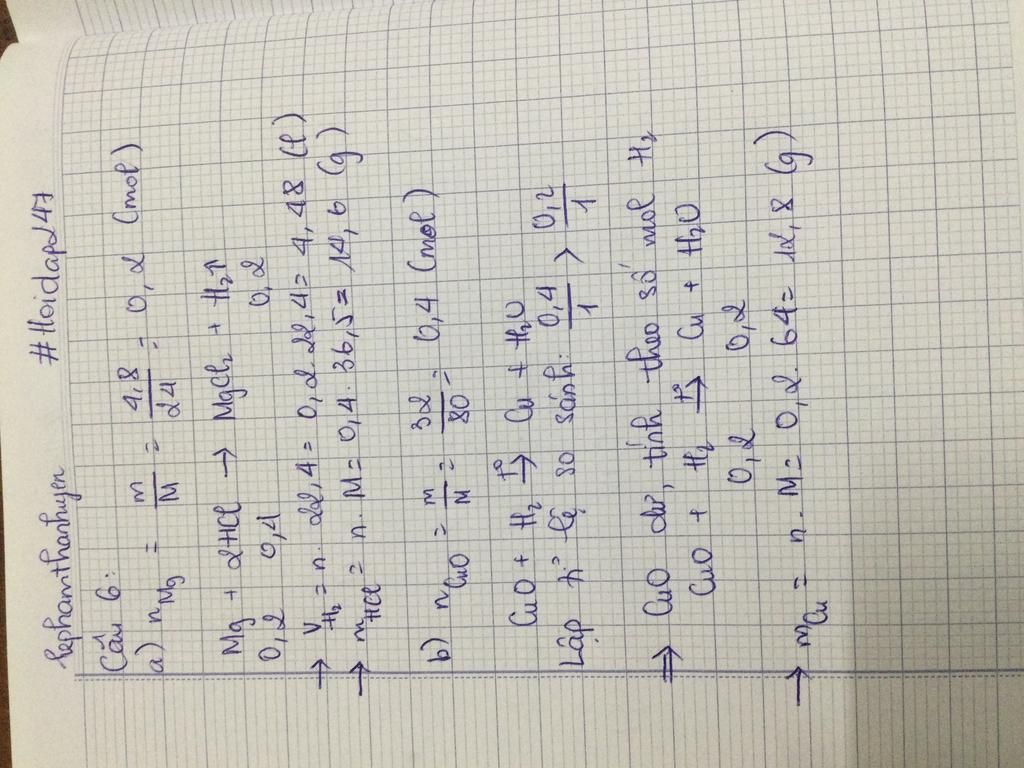 lephamthanhuyen #Hoidap247
Câu 6:
a) n Mg = m/M = 4,8/24 = 0,2 (mol)
Mg + 2HCl → MgCl₂ + H₂↑
0,2 0,4 0,2
→ V H₂ = n. 22,4 = 0,2. 22,4 = 4,48 (l)
→ m HCl = n. M = 0,4. 36,5 = 14,6 (g)
b) n CuO = m/M = 32/80 = 0,4 (mol)
CuO + H₂ →t° Cu + H₂O
Lập tỉ lệ so sánh: 0,4/1 > 0,2/1
⇒ CuO dư, tính theo số mol H₂
CuO + H₂ →t° Cu + H₂O
0,2 0,2
→ m Cu = n. M = 0,2. 64 = 12,8 (g)